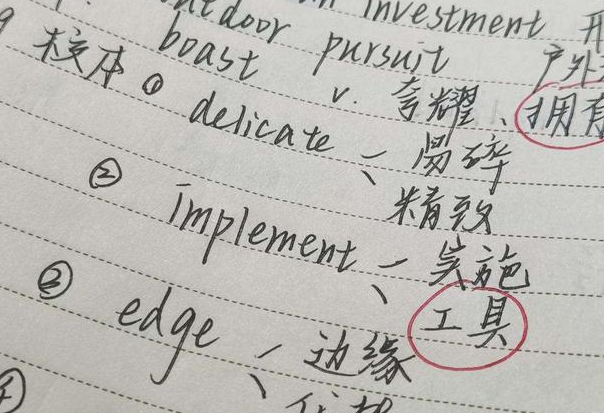 investment 开
outdoor pursuit 户外
boast v. 夸耀、拥有
核本 ① delicate 易碎
精致
② implement 实施
工具
③ edge 边缘
④